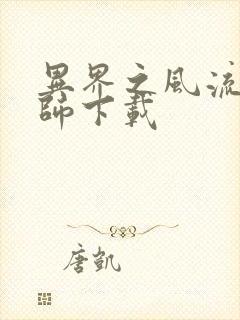 異界之風流
師下載
唐凱